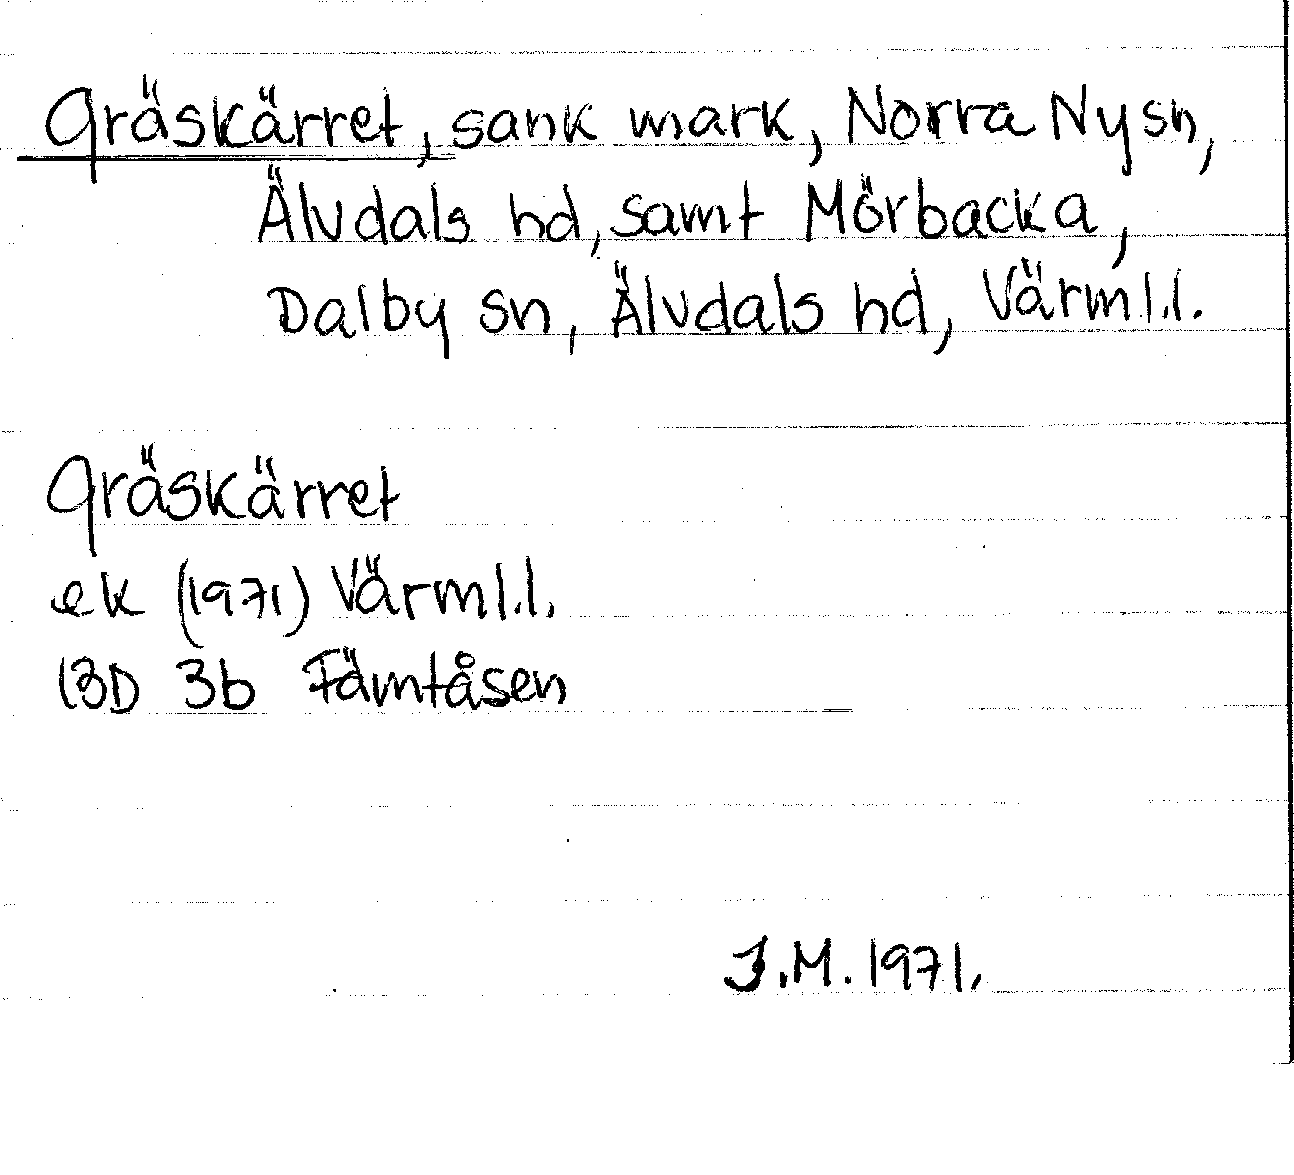 Gräskärret, sank mark, Norra Ny sn,
Älvdals hd, samt Mörbacka,
Dalby sn, Älvdals hd, Värml.l.
Gräskärret
ek (1971) Värml.l.
13D 3b Fämtåsen
J.M. 1971.